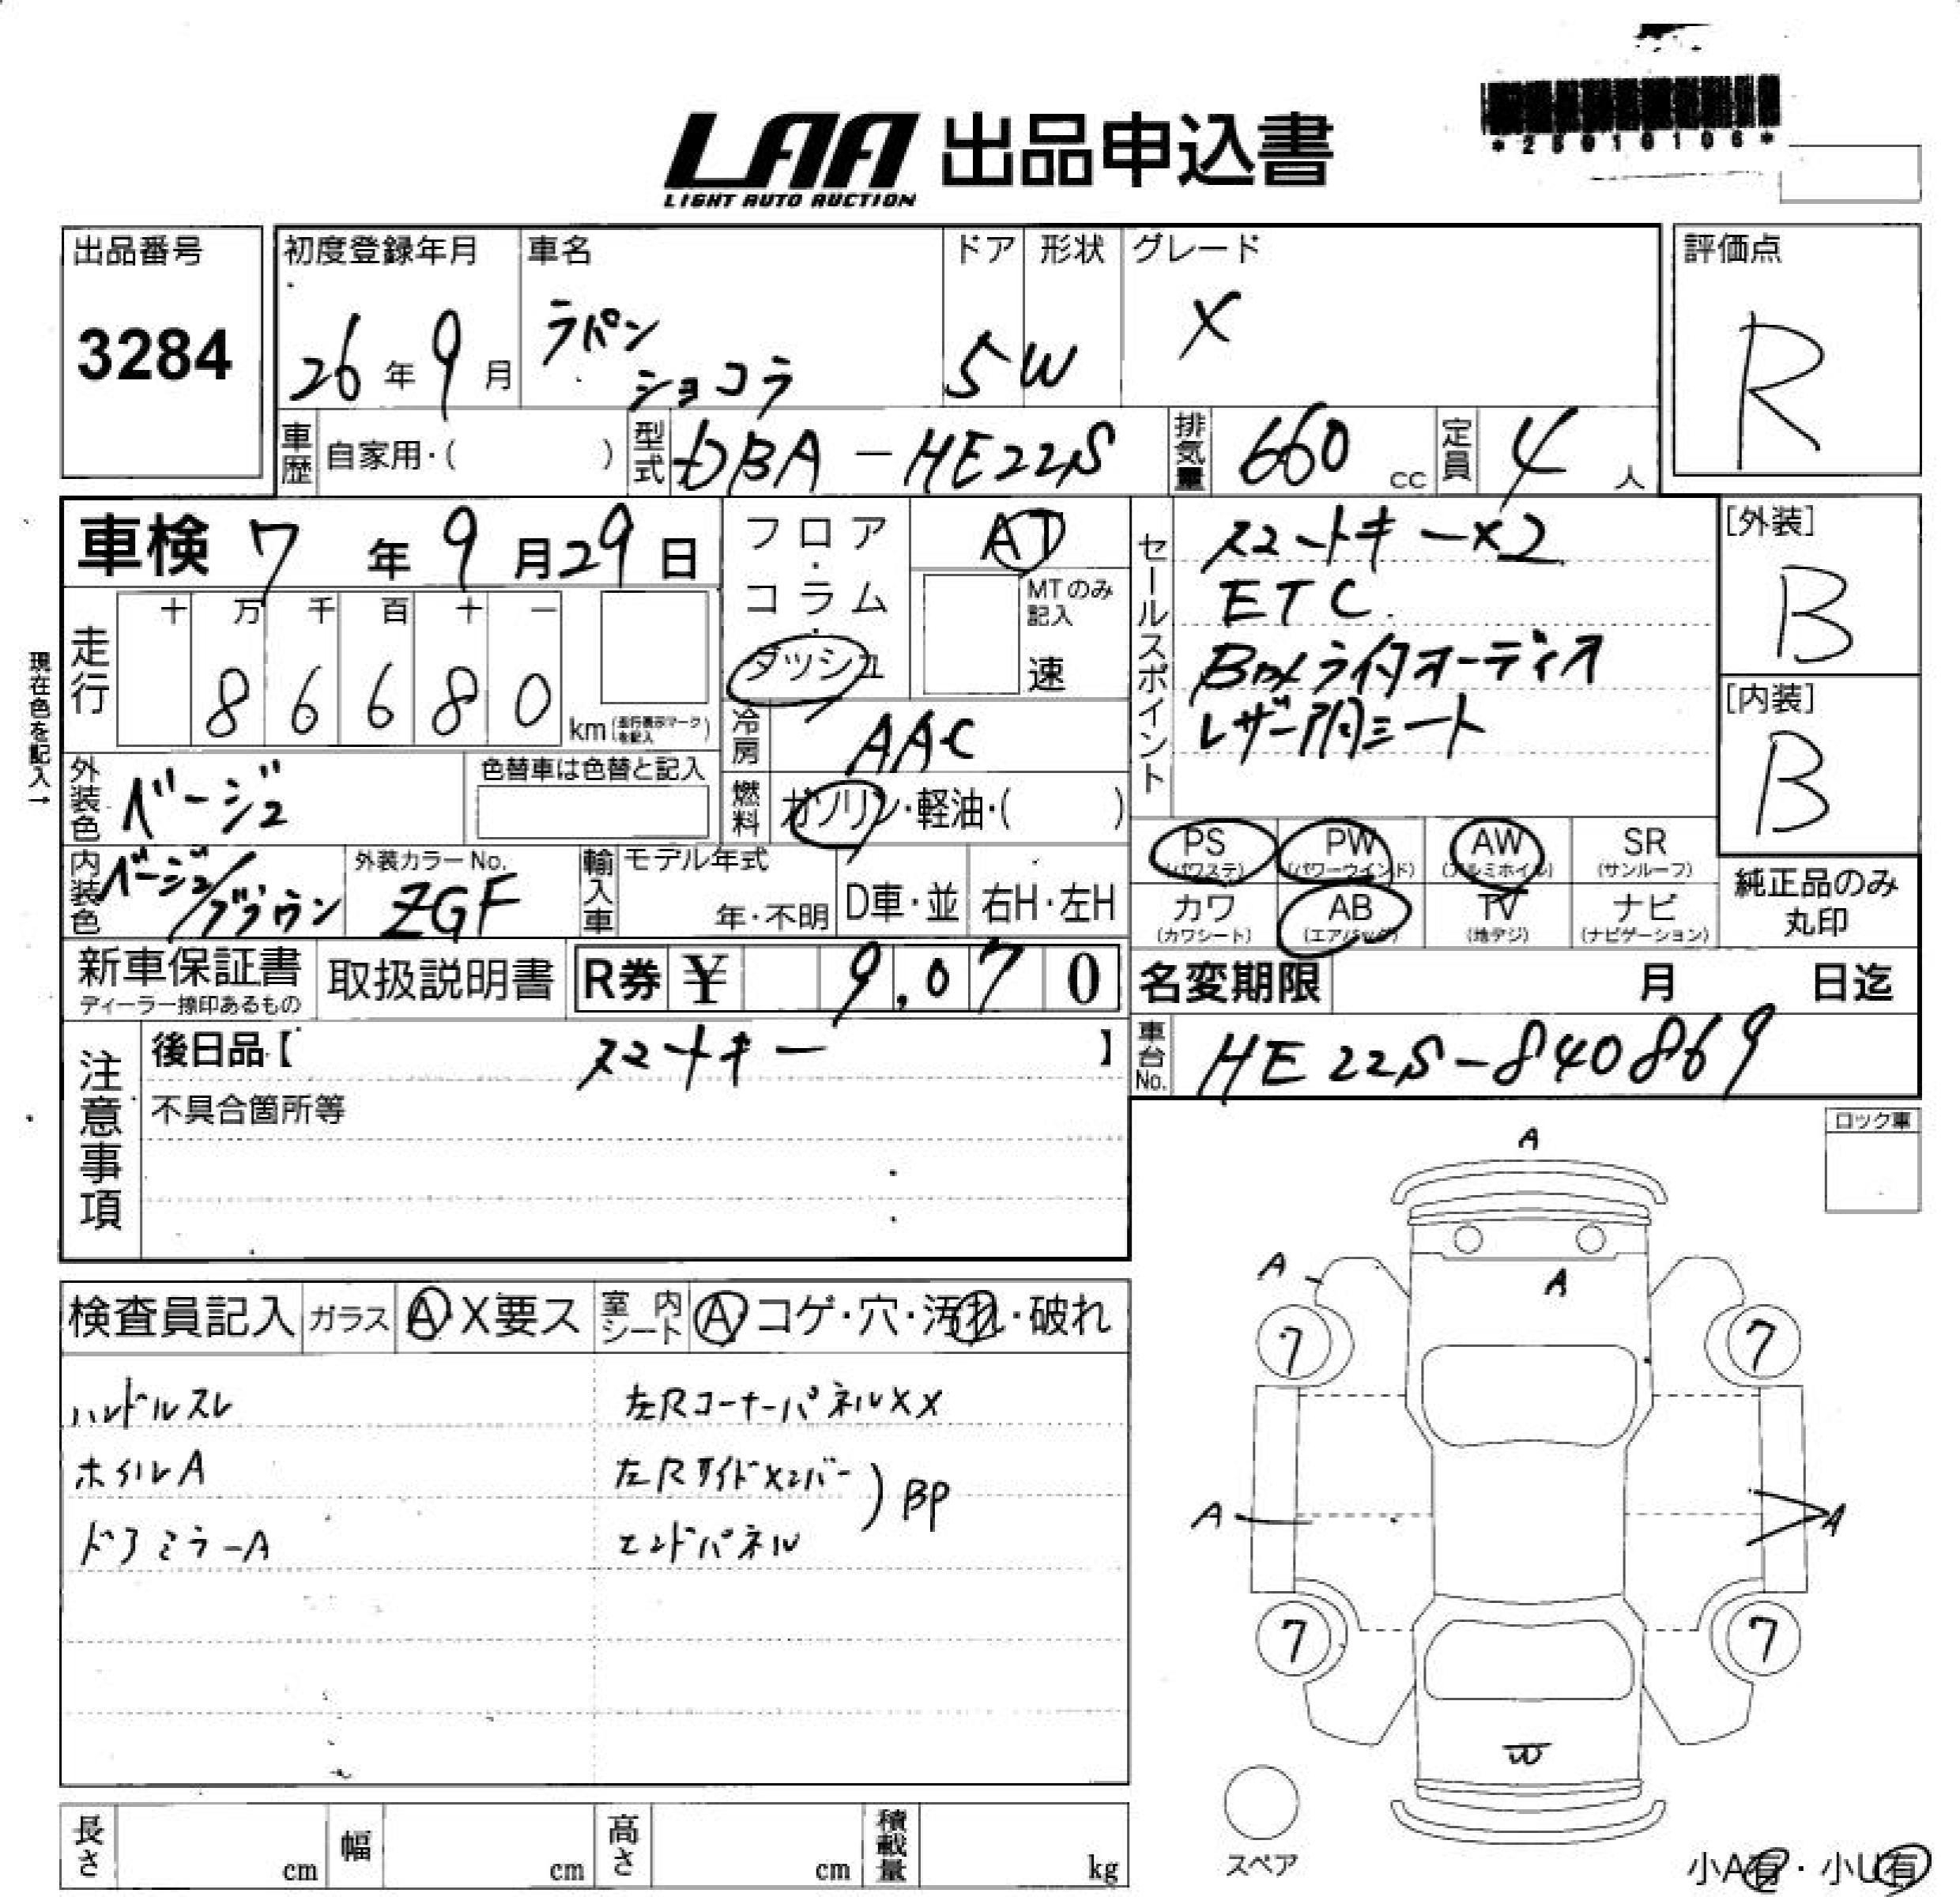 *25010106*
LAA 出品申込書
LIGHT AUTO AUCTION
出品番号
3284
初度登録年月
26年9月
車名
ラパン
ショコラ
ドア
5
形状
W
グレード
X
評価点
R
車歴 自家用・( )
型式 DBA-HE22S
排気量 660 cc
定員 4 人
車検 7年9月29日
フロア・コラム・ダッシュ
AT
MTのみ記入
速
セールスポイント
スマートキー×2
ETC
レザー調シート
[外装]
B
[内装]
B
現在色を記入→
走行
十万千百十一
86680
km(走行表示マークを記入)
冷房 AAC
燃料 ガソリン・軽油・( )
外装色 ベージュ
色替車は色替と記入
内装色 ベージュ/ブラウン
外装カラーNo.
ZGF
輸入車 モデル年式
年・不明
D車・並
右H・左H
PS (パワステ)
PW (パワーウインド)
AW (アルミホイル)
SR (サンルーフ)
カワ (カワシート)
AB (エアバッグ)
TV (地デジ)
ナビ (ナビゲーション)
純正品のみ
丸印
新車保証書
ディーラー捺印あるもの
取扱説明書
R券 ¥ 9,070
名変期限 月 日迄
車台No. HE22S-840869
注意事項
後日品【 スマートキー 】
不具合箇所等
ロック車
検査員記入
ガラス A・X要ス
室内シート A コゲ・穴・汚れ・破れ
ハンドルスレ
ホイルA
ドアミラーA
左RコーナーパネルXX
左Rサイドメンバー
エンドパネル
) BP
A
A
A
7
7
A
A
7
7
スペア
小A有・小U有
長さ cm
幅 cm
高さ cm
積載量 kg